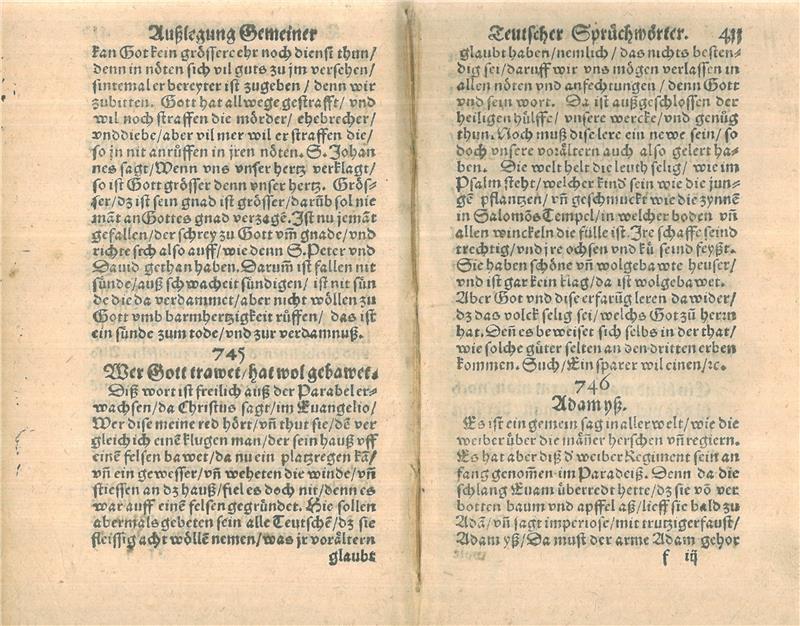 Außlegung Gemeiner
kan Got kein grössere ehr noch dienst thun/
denn in nöten sich vil guts zu jm versehen/
sintemal er bereyter ist zugeben / denn wir
zubitten. Gott hat allwege gestrafft/ vnd
wil noch straffen die mörder/ ehebrecher/
vnd diebe/aber vil mer wil er straffen die/
so jn nit anrüffen in jren nöten. S. Johan
nes sagt/Wenn vns vnser hertz verklagt/
so ist Gott grösser denn vnser hertz. Grös-
ser/dz ist sein gnad ist grösser/darūb sol nie
māt an Gottes gnad verzagē. Ist nu jemāt
gefallen/der schrey zu Gott vm̄ gnade/vnd
richte sich also auff/wie denn S. Peter vnd
Dauid gethan haben. Darum̄ ist fallen nit
sünde/auß schwacheit sündigen/ ist nit sün
de die da verdammet/aber nicht wöllen zu
Gott vmb barmhertzigkeit rüffen/ das ist
ein sünde zum tode/vnd zur verdamnuß.
745
Wer Gott trawet/hat wol gebawet.
Diß wort ist freilich auß der Parabel er-
wachsen/da Christus sagt/im Euangelio/
Wer dise meine red hört/vn̄ thut sie/dē ver
gleich ich einē klugen man/der sein hauß vff
einē felsen bawet/da nu ein platzregen kā/
vn̄ ein gewesser/vn̄ weheten die winde/vn̄
stiessen an dz hauß/fiel es doch nit/denn es
war auff einē felsen gegründet. Hie sollen
abermals gebeten sein alle Teutschē/dz sie
fleissig acht wöllē nemen/was jr vorältern
glaubt
Teutscher Sprüchwörter. 433
glaubt haben/nemlich/das nichts besten-
dig sei/daruff wir vns mögen verlassen in
allen nöten vnd anfechtungen/denn Gott
vnd sein wort. Da ist außgeschlossen der
heiligen hülffe/ vnsere wercke/vnd genůg
thun. Noch muß dise lere ein newe sein/ so
doch vnsere vorältern auch also gelert ha-
ben. Die welt helt die leuth selig/ wie im
Psalm steht/welcher kind sein wie die jun-
gē pflantzen/ vn̄ geschmuckt wie die zynnē
in Salomōs Tempel/in welcher boden vn̄
allen winckeln die fülle ist. Ire schaffe seind
trechtig/vnd jre ochsen vnd kū seind feyßt.
Sie haben schöne vn̄ wolgebawte heuser/
vnd ist gar kein klag/da ist wolgebawet.
Aber Got vnd dise erfarūg leren dawider/
dz das volck selig sei/welchs Got zů herrn
hat. Deñ es beweiset sich selbs in der that/
wie solche güter selten an den dritten erben
kommen. Such/Ein sparer wil einen/ꝛc.
746
Adam yß.
Es ist ein gemein sag in aller welt/wie die
weiber über die mäner herschen vn̄ regiern.
Es hat aber diß d' weiber Regiment sein an
fang genom̄en im Paradeiß. Denn da die
schlang Euam überredt hette/dz sie vō ver
botten baum vnd apffel aß/lieff sie bald zu
Adā/vn̄ sagt imperiose/mit trutziger faust/
Adam yß/Da must der arme Adam gehor
f iij